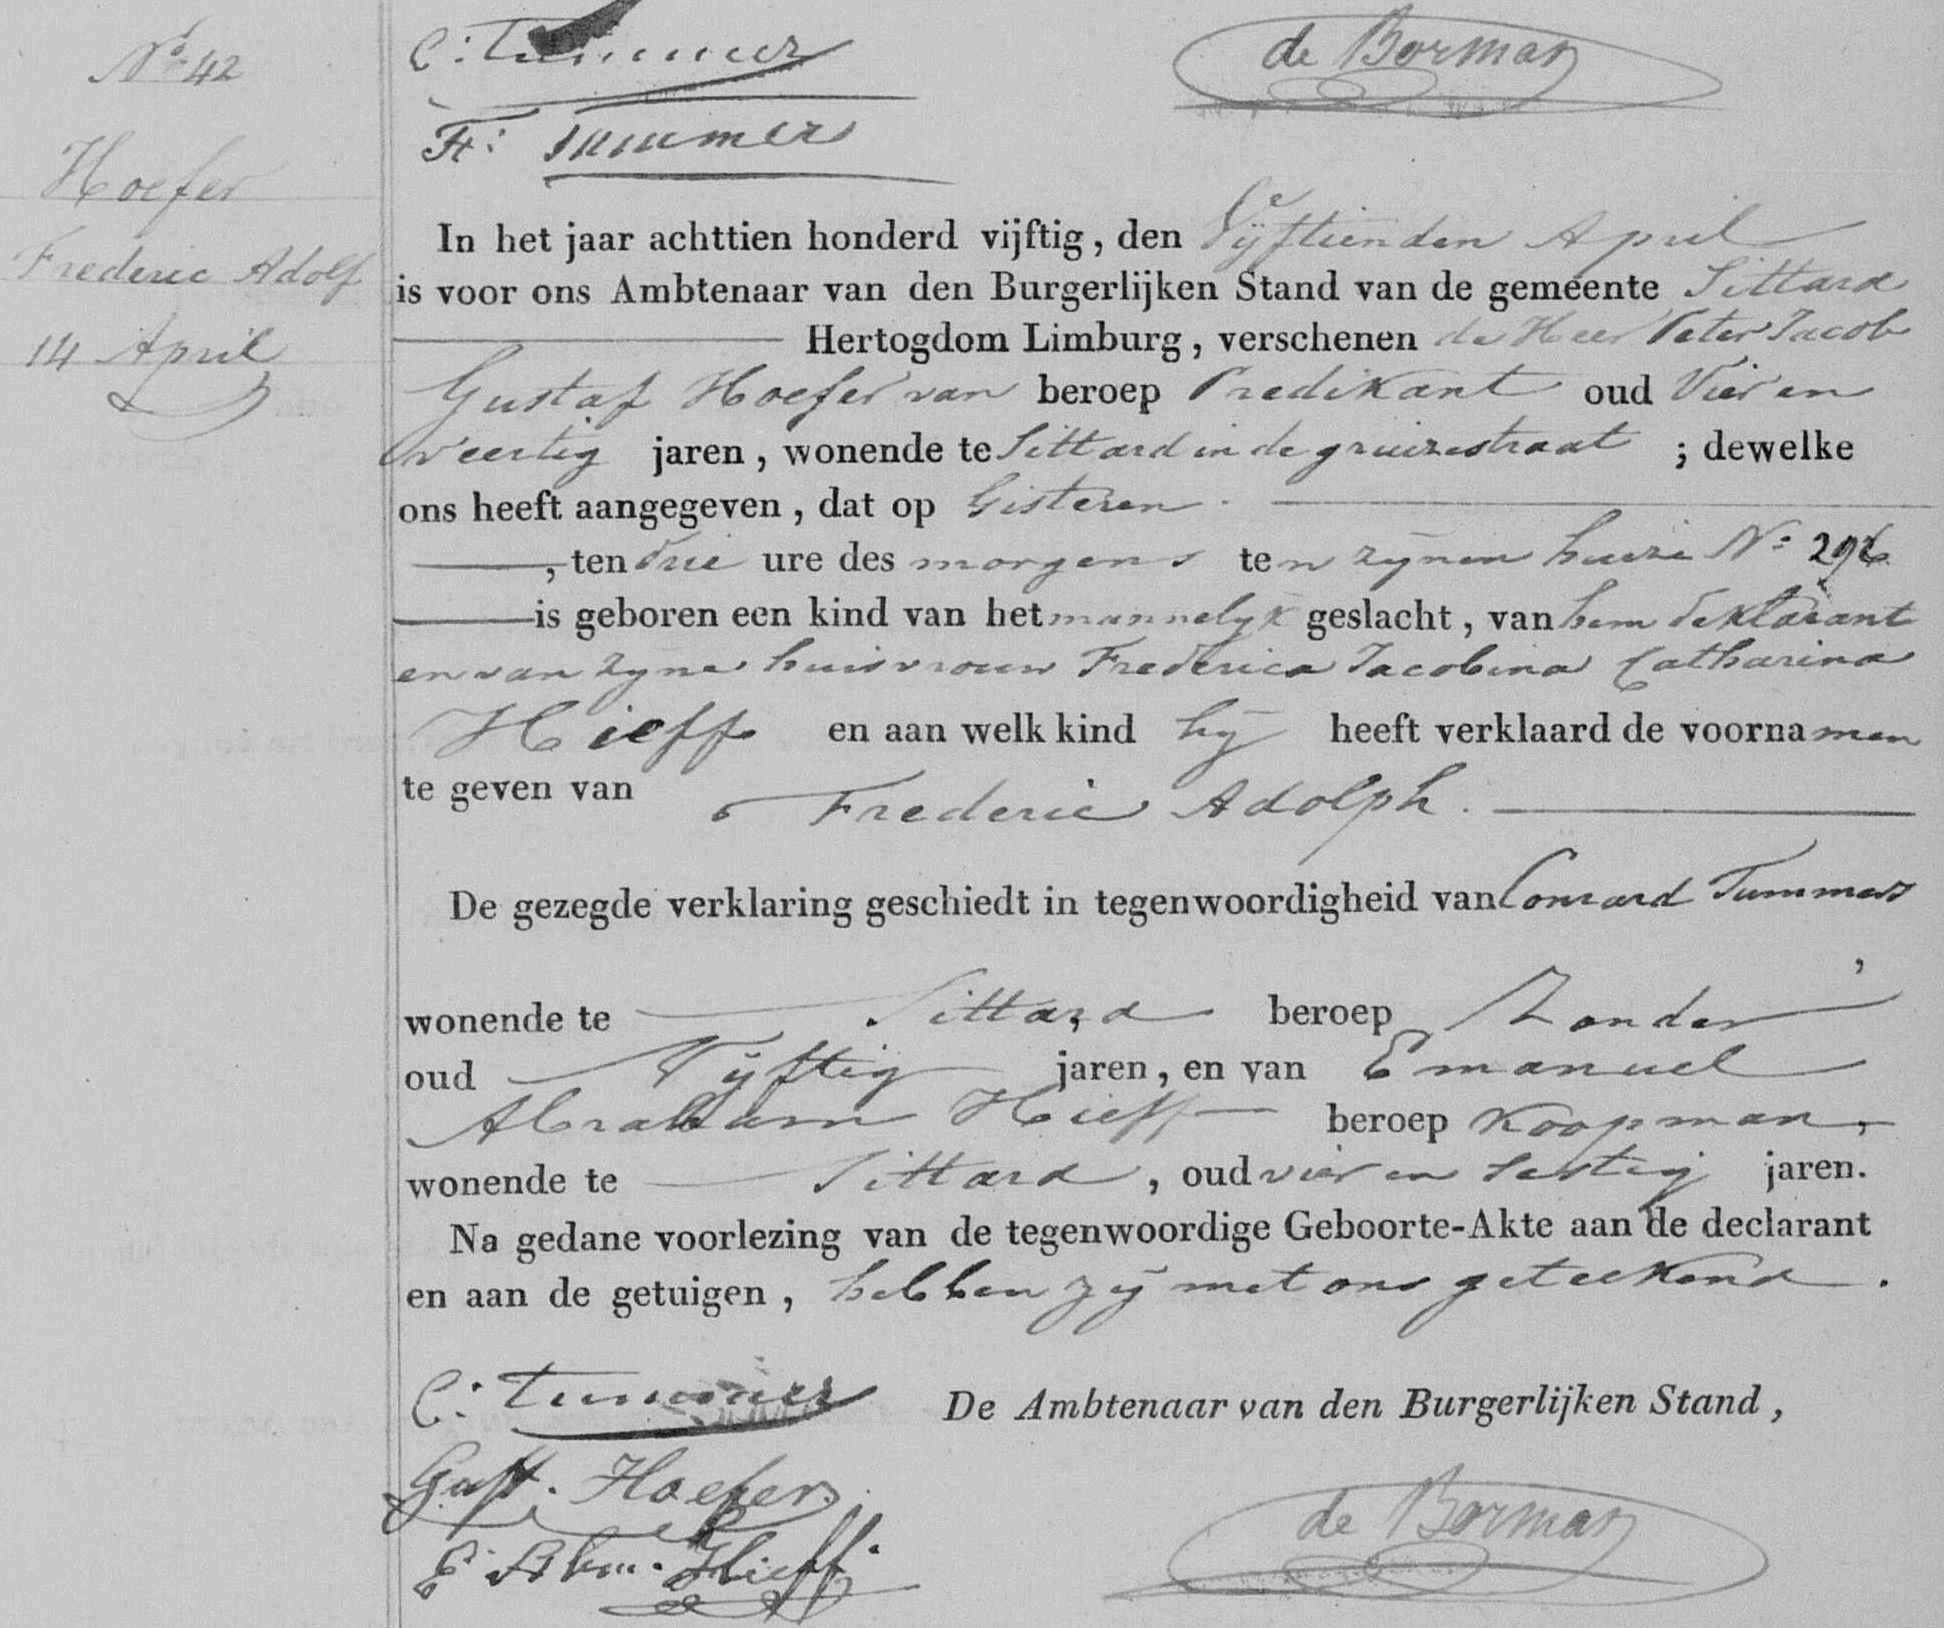 No. 42
Hoefer
Frederic Adolf
14 April
C: Tummers
de Borman
Fr: Tummers
In het jaar achttien honderd vijftig, den Vijftienden April
is voor ons Ambtenaar van den Burgerlijken Stand van de gemeente Sittard
Hertogdom Limburg, verschenen de Heer Peter Jacob
Gustaf Hoefer van beroep Predikant oud Vier en
veertig jaren, wonende te Sittard in de gruizestraat ; dewelke
ons heeft aangegeven, dat op Gisteren
, ten drie ure des morgens ten zijnen huize No:
is geboren een kind van het mannelyk geslacht, van hem deklarant
en van zyne huisvrouw Frederica Jacobina Catharina
Hieff en aan welk kind hij heeft verklaard de voornamen
te geven van Frederic Adolph.
De gezegde verklaring geschiedt in tegenwoordigheid van Conrard Tummers
,
wonende te Sittard beroep Zonder
oud Vijftig jaren, en van Emanuel
Abraham Hieff beroep Koopman,
wonende te Sittard, oud vier en sestig jaren.
Na gedane voorlezing van de tegenwoordige Geboorte-Akte aan de declarant
en aan de getuigen, hebben zij met ons geteekend.
C: Tummers
De Ambtenaar van den Burgerlijken Stand,
Gust. Hoefer.
E. Abm. Hieff.
de Borman